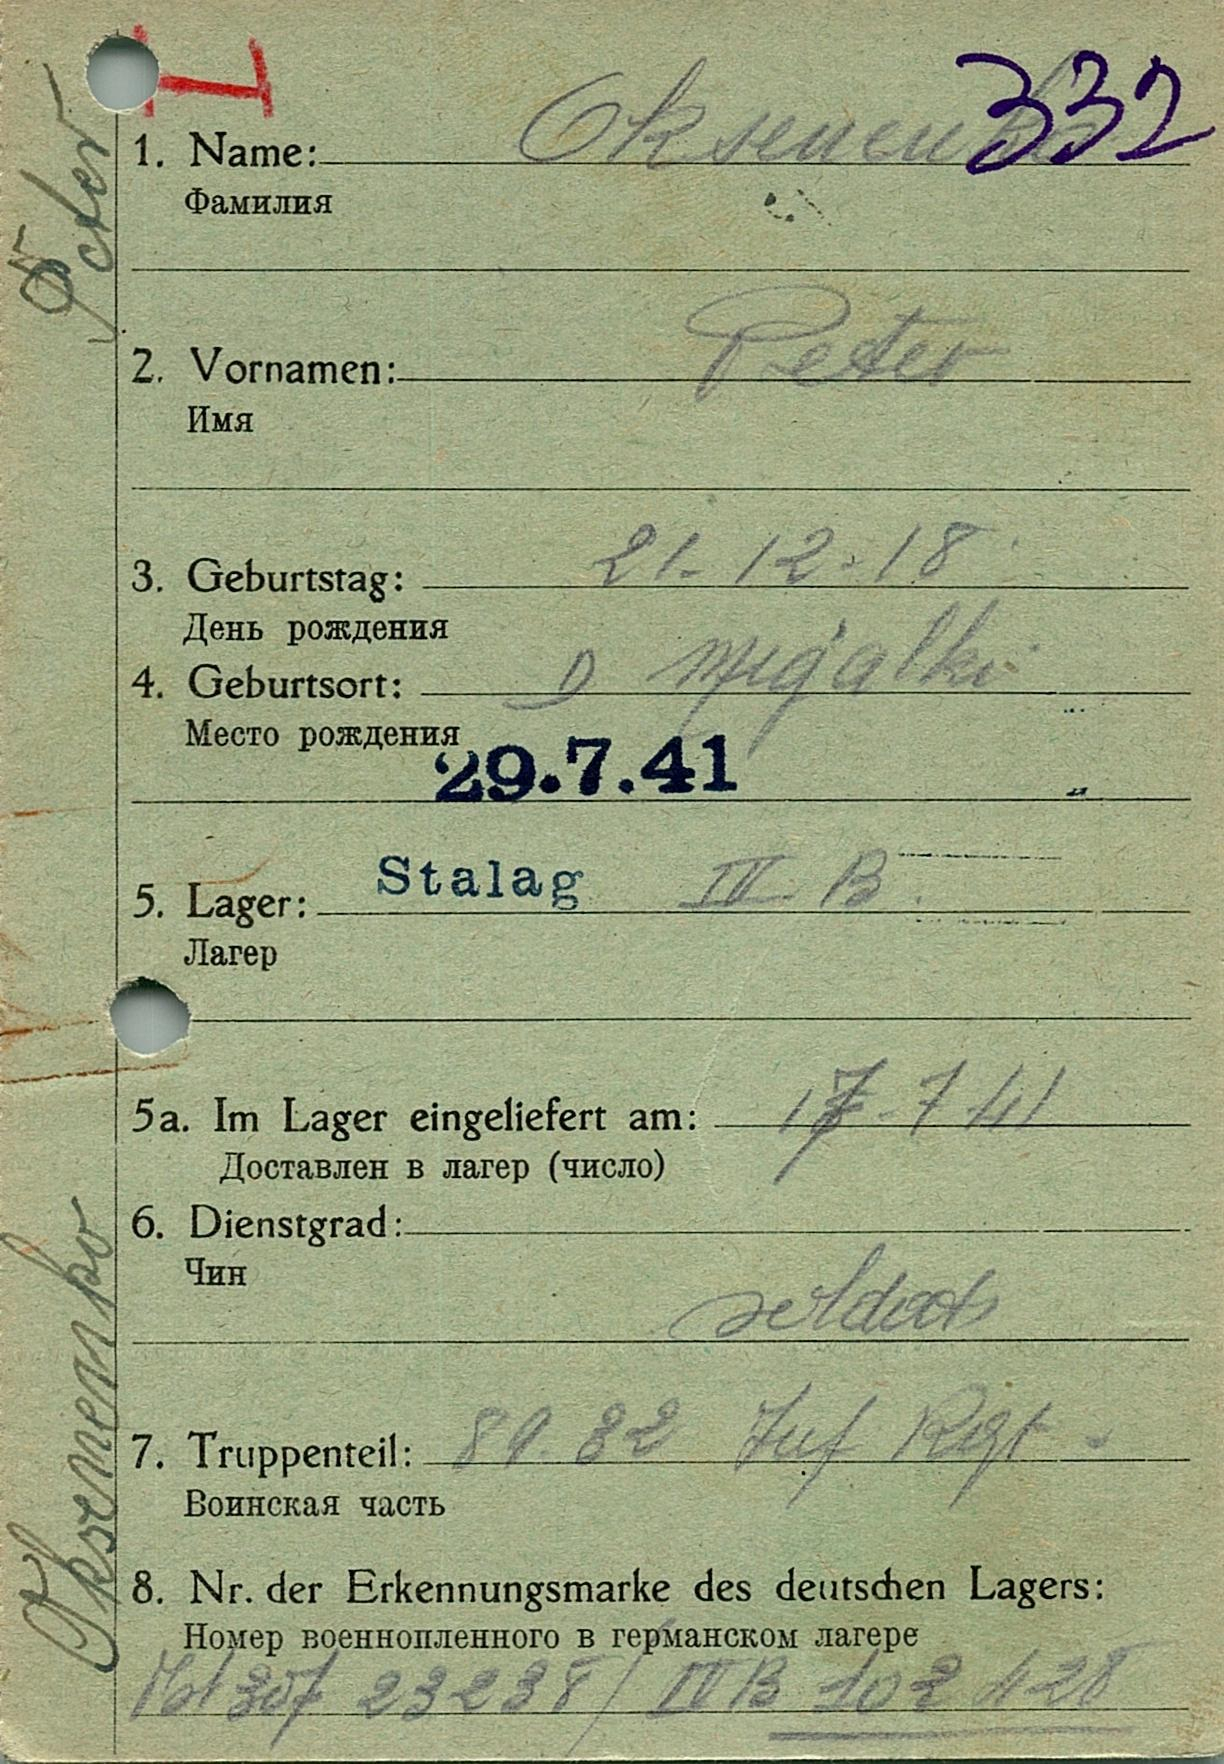 332
1. Name: Oksenenko
Фамилия
2. Vornamen: Peter
Имя
3. Geburtstag: 21.12.18
День рождения
4. Geburtsort: D migalki
Место рождения
29.7.41
5. Lager: Stalag IV B
Лагер
5a. Im Lager eingeliefert am: 17.7 41
Доставлен в лагер (число)
6. Dienstgrad:
Чин
soldat
7. Truppenteil: 89.82 Inf Rgt.
Воинская часть
8. Nr. der Erkennungsmarke des deutschen Lagers:
Номер военнопленного в германском лагере
307 23238 / IV B 102 428
Oksenenko Peter